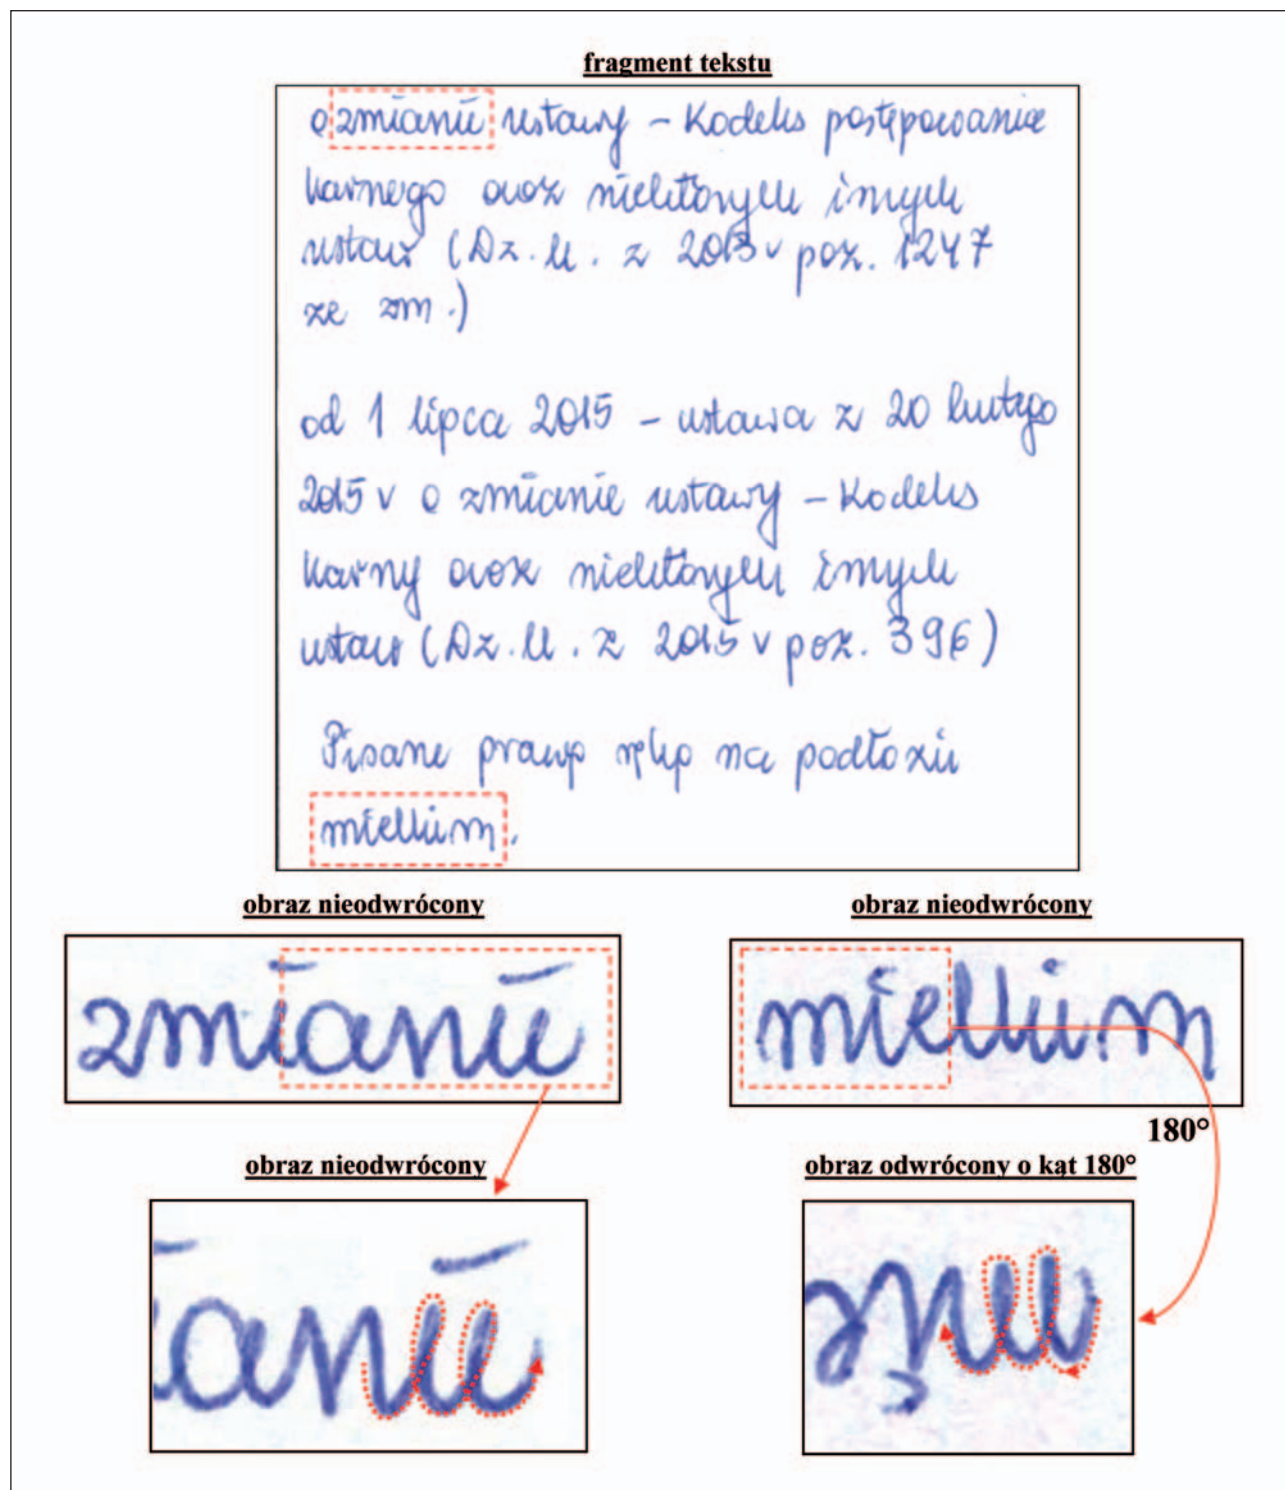 fragment tekstu
o zmianie ustawy – Kodeks postępowania
karnego oraz niektórych innych
ustaw (Dz. U. z 2013 r poz. 1247
ze zm.)
od 1 lipca 2015 – ustawa z 20 lutego
2015 r o zmianie ustawy – Kodeks
karny oraz niektórych innych
ustaw (Dz. U. z 2015 r poz. 396)
Pisane prawą ręką na podłożu
miękkim.
obraz nieodwrócony
obraz nieodwrócony
zmianie
miękkim
180°
obraz nieodwrócony
obraz odwrócony o kąt 180°